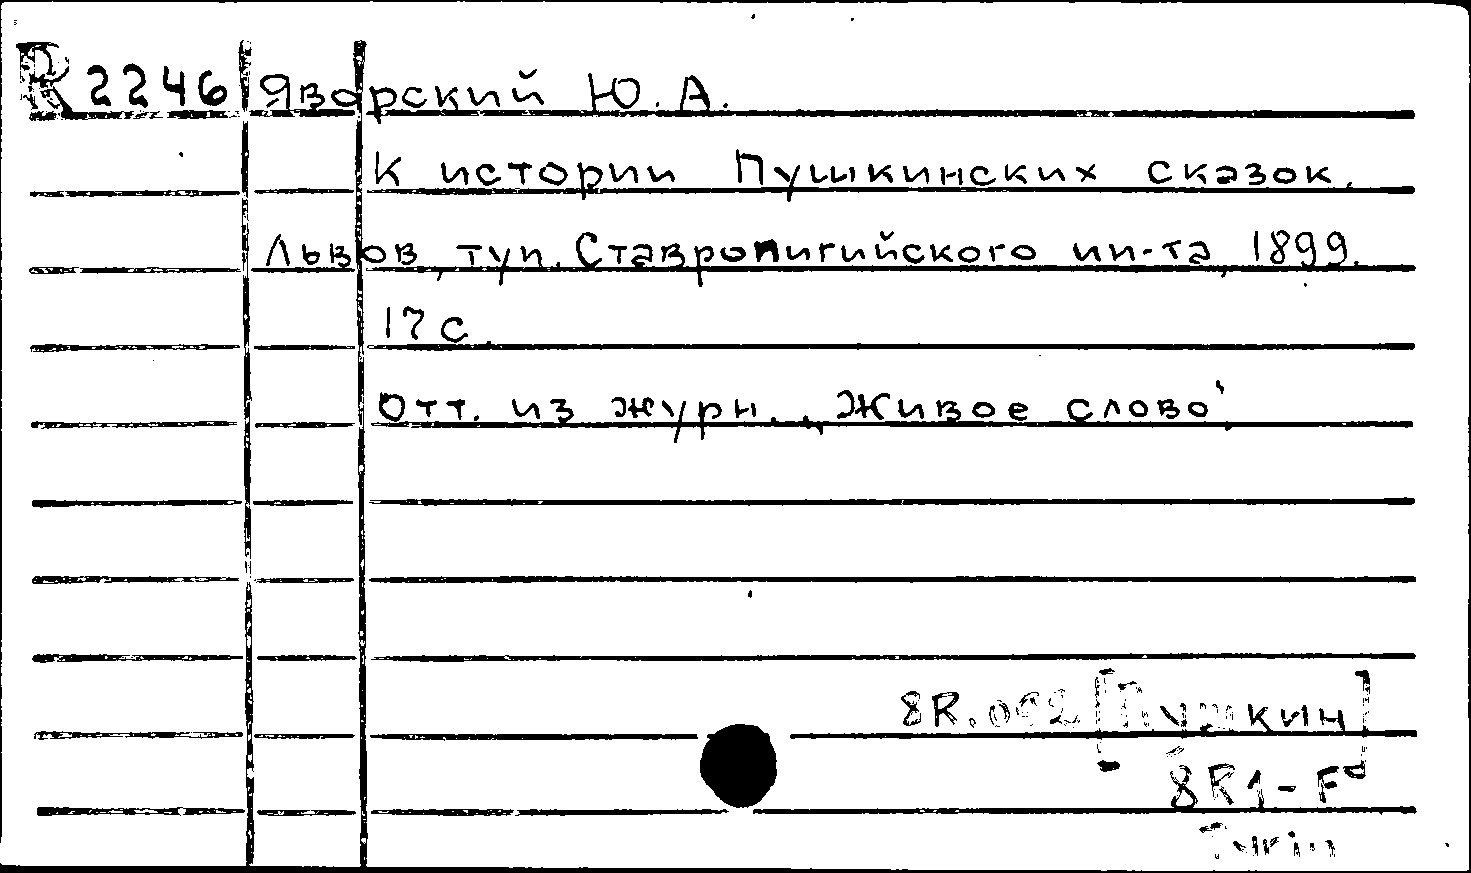 R 2246 Яворский Ю. А.
К истории Пушкинских сказок.
Львов, тип. Ставропигийского ин-та, 1899.
17 с.
Отт. из журн. „Живое слово“.
8R.092 [Пушкин]
8R1-F